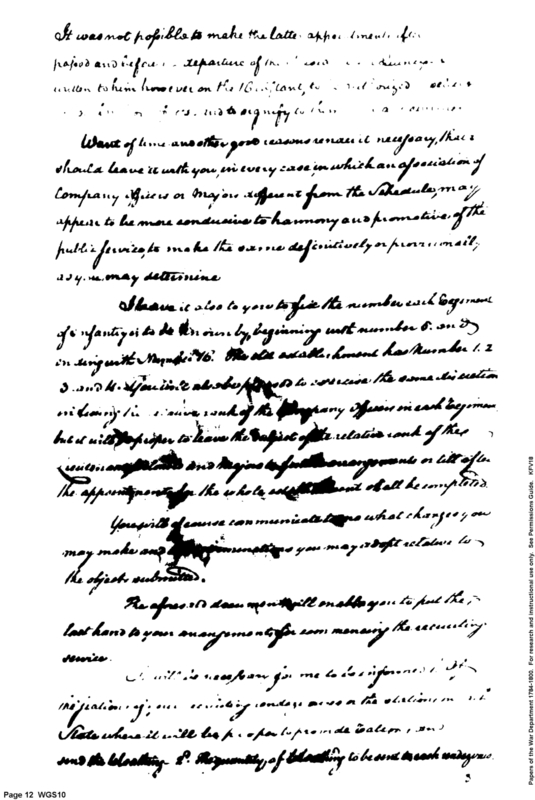 It was not possible to make the latter appointments after
passed and before departure of
written to him however on the 16 instant, to authorized
and to signify to them
Want of time and other good reasons render it necessary, that I
should leave it with you, in every case, in which an association of
Company officers or Majors different from the Schedule, may
appear to be more conducive to harmony and promotive, of the
public service, to make the same definitively or provisionally,
as you may determine
I leave it also to you to fix the number each Regiment
of infantry is to be known by, beginning with number 5. and
ending with Number 16. The old establishment has Number 1. 2
3. and 4. You will also be pleased to exercise the same discretion
in fixing the relative rank of the Company officers in each Regiment
but it will be proper to leave the subject of the relative rank of the
and Majors to further arrangements or till after
the appointments for the whole establishment shall be completed.
You will of course communicate to me what changes you
may make and you may adopt relative to
the objects submitted.
The aforesaid document will enable you to put the
last hand to your arrangements for commencing the recruiting
service.
It will be necessary for me to be informed
the stations of your recruiting rendezvouses or the stations in
State where it will be proper to provide Rations, and
send the Cloathing &c. The quantity of Cloathing to be sent to each rendezvous.
3
Page 12 WGS10
Papers of the War Department 1784-1800. For research and instructional use only. See Permissions Guide. KFV18